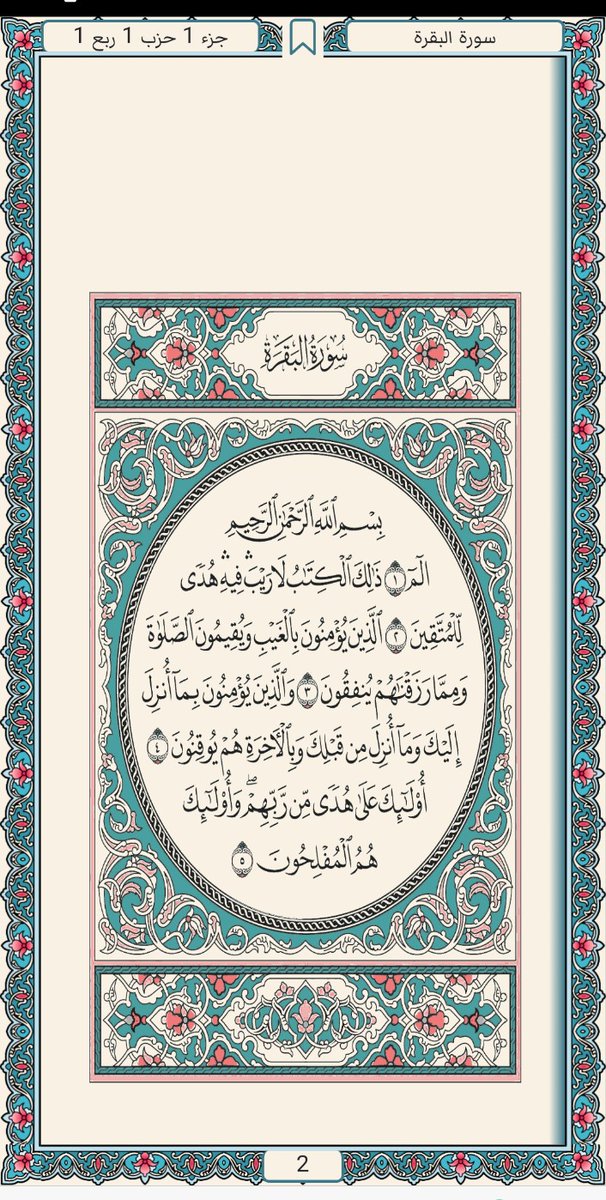 سورة البقرة
جزء 1 حزب 1 ربع 1
سُورَةُ البَقَرَةِ
بِسْمِ ٱللَّهِ ٱلرَّحْمَٰنِ ٱلرَّحِيمِ
الٓمٓ ١ ذَٰلِكَ ٱلْكِتَٰبُ لَا رَيْبَ ۛ فِيهِ ۛ هُدًى
لِّلْمُتَّقِينَ ٢ ٱلَّذِينَ يُؤْمِنُونَ بِٱلْغَيْبِ وَيُقِيمُونَ ٱلصَّلَوٰةَ
وَمِمَّا رَزَقْنَٰهُمْ يُنفِقُونَ ٣ وَٱلَّذِينَ يُؤْمِنُونَ بِمَآ أُنزِلَ
إِلَيْكَ وَمَآ أُنزِلَ مِن قَبْلِكَ وَبِٱلْءَاخِرَةِ هُمْ يُوقِنُونَ ٤
أُو۟لَٰٓئِكَ عَلَىٰ هُدًى مِّن رَّبِّهِمْ ۖ وَأُو۟لَٰٓئِكَ
هُمُ ٱلْمُفْلِحُونَ ٥
2